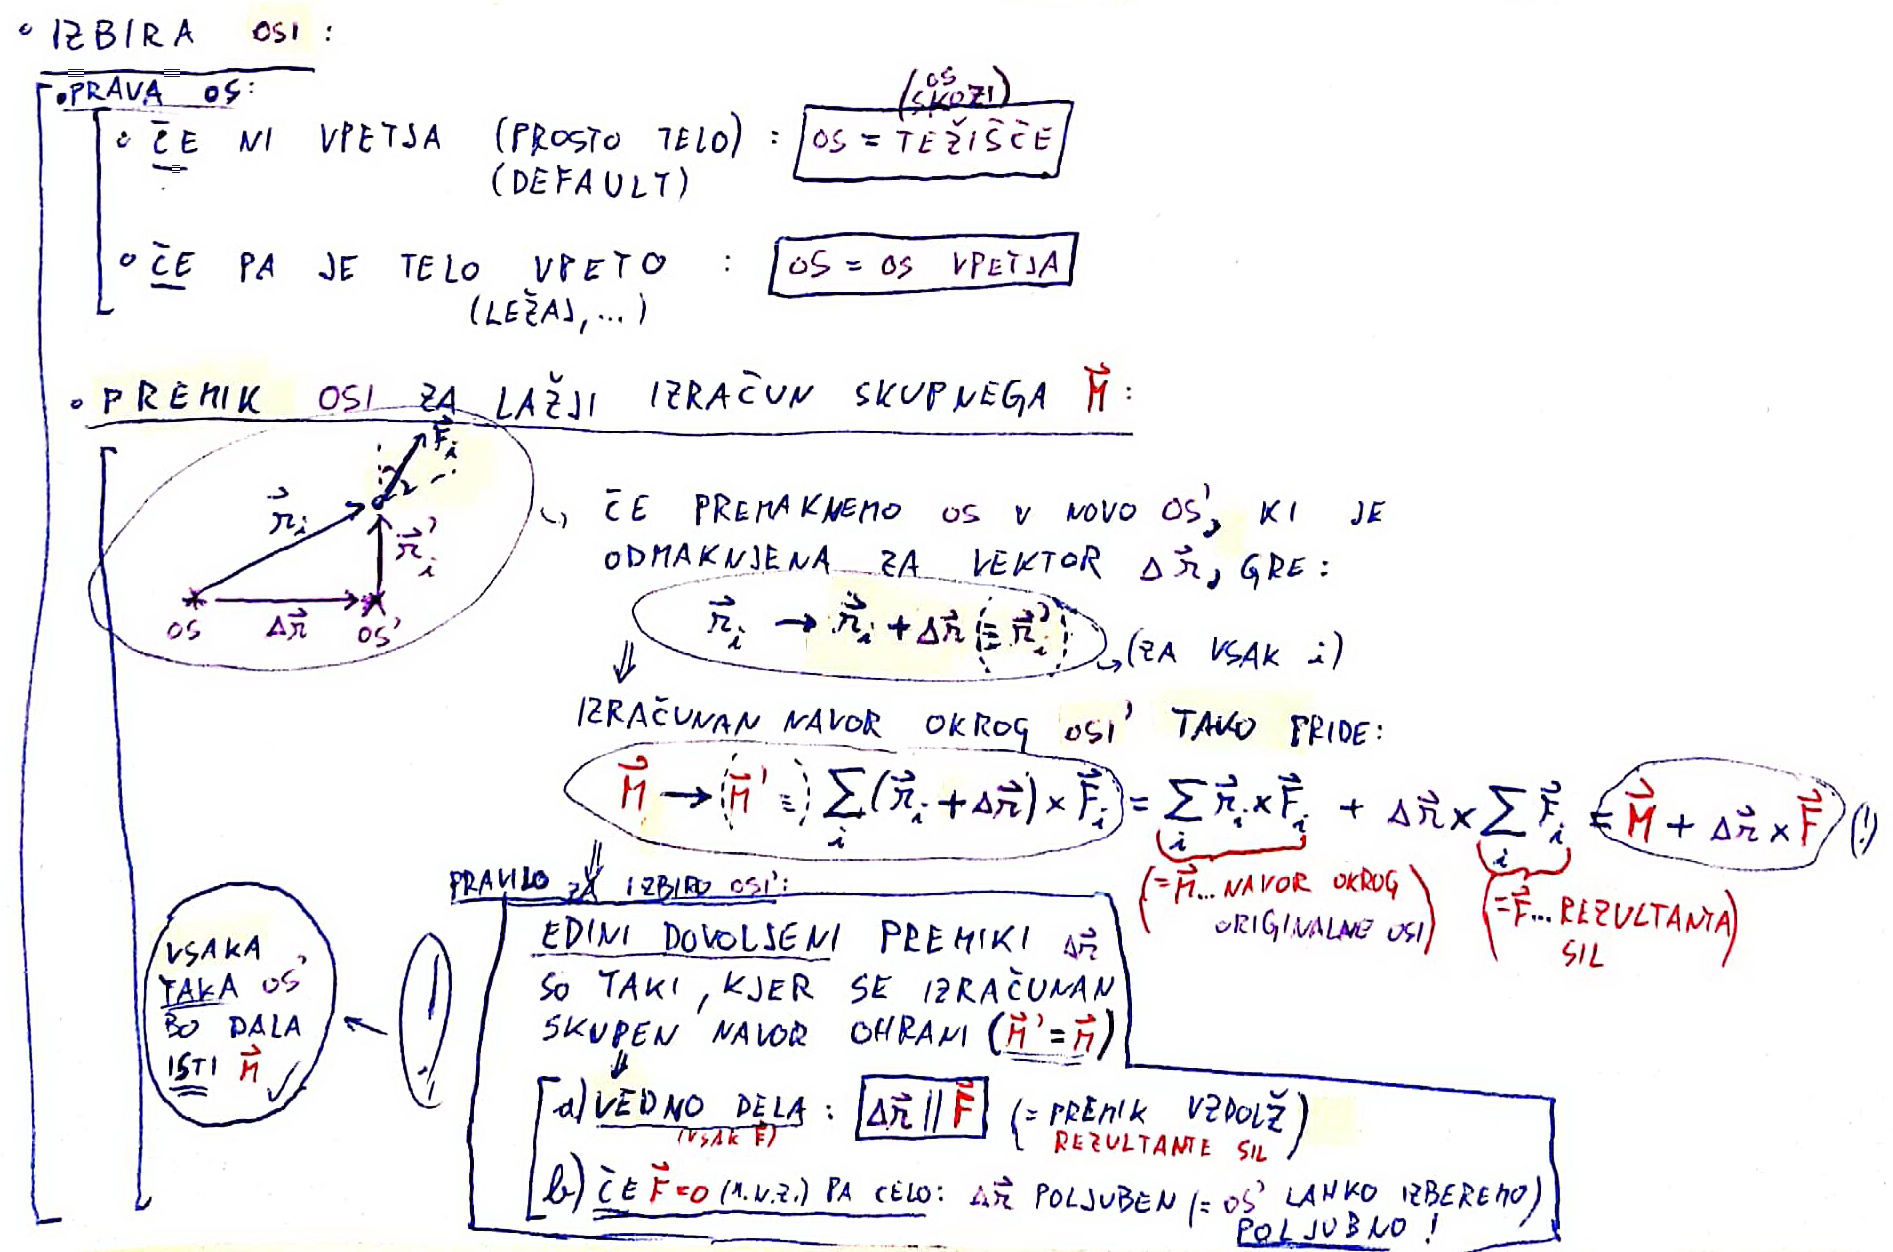 • IZBIRA OSI :
• PRAVA OS:
• ČE NI VPETJA (PROSTO TELO) : OS = TEŽIŠČE
(OS SKOZI)
(DEFAULT)
• ČE PA JE TELO VPETO : OS = OS VPETJA
(LEŽAJ, ...)
• PREMIK OSI ZA LAŽJI IZRAČUN SKUPNEGA M⃗ :
F⃗ᵢ
r⃗ᵢ
r⃗ᵢ'
OS Δr⃗ OS'
ČE PREMAKNEMO OS V NOVO OS', KI JE
ODMAKNJENA ZA VEKTOR Δr⃗, GRE:
r⃗ᵢ → r⃗ᵢ + Δr⃗ (≡ r⃗ᵢ')
(ZA VSAK i)
⇓
IZRAČUNAN NAVOR OKROG OSI' TAKO PRIDE:
M⃗ → (M⃗' ≡) ∑ᵢ (r⃗ᵢ + Δr⃗) × F⃗ᵢ = ∑ᵢ r⃗ᵢ × F⃗ᵢ + Δr⃗ × ∑ᵢ F⃗ᵢ = M⃗ + Δr⃗ × F⃗ (!)
(= M⃗... NAVOR OKROG
ORIGINALNE OSI)
(= F⃗... REZULTANTA
SIL)
⇓
PRAVILO ZA IZBIRO OSI':
EDINI DOVOLJENI PREMIKI Δr⃗
SO TAKI, KJER SE IZRAČUNAN
SKUPEN NAVOR OHRANI (M⃗' = M⃗)
⇓
a) VEDNO DELA : Δr⃗ || F⃗ (= PREMIK VZDOLŽ
(VSAK F⃗)
REZULTANTE SIL)
b) ČE F⃗=0 (1.N.Z.) PA CELO: Δr⃗ POLJUBEN (= OS' LAHKO IZBEREMO)
POLJUBNO !
!
VSAKA
TAKA OS'
BO DALA
ISTI M⃗ ✓